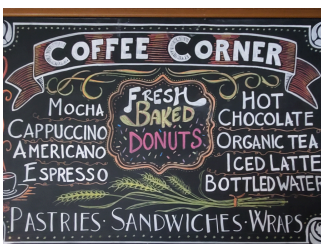 COFFEE CORNER
MOCHA
CAPPUCCINO
AMERICANO
ESPRESSO
FRESH
BAKED
DONUTS
HOT
CHOCOLATE
ORGANIC TEA
ICED LATTE
BOTTLED WATER
PASTRIES · SANDWICHES · WRAPS